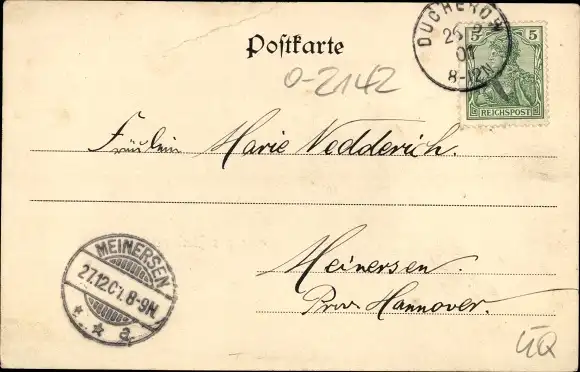 Postkarte
DUCHEROW
26
01
8-12N
5 5
REICHSPOST
0-2142
Fräulein Marie Vedderich.
Meinersen.
Prov. Hannover.
MEINERSEN
27.12.01. 8-9N.
* * a
ÜQ